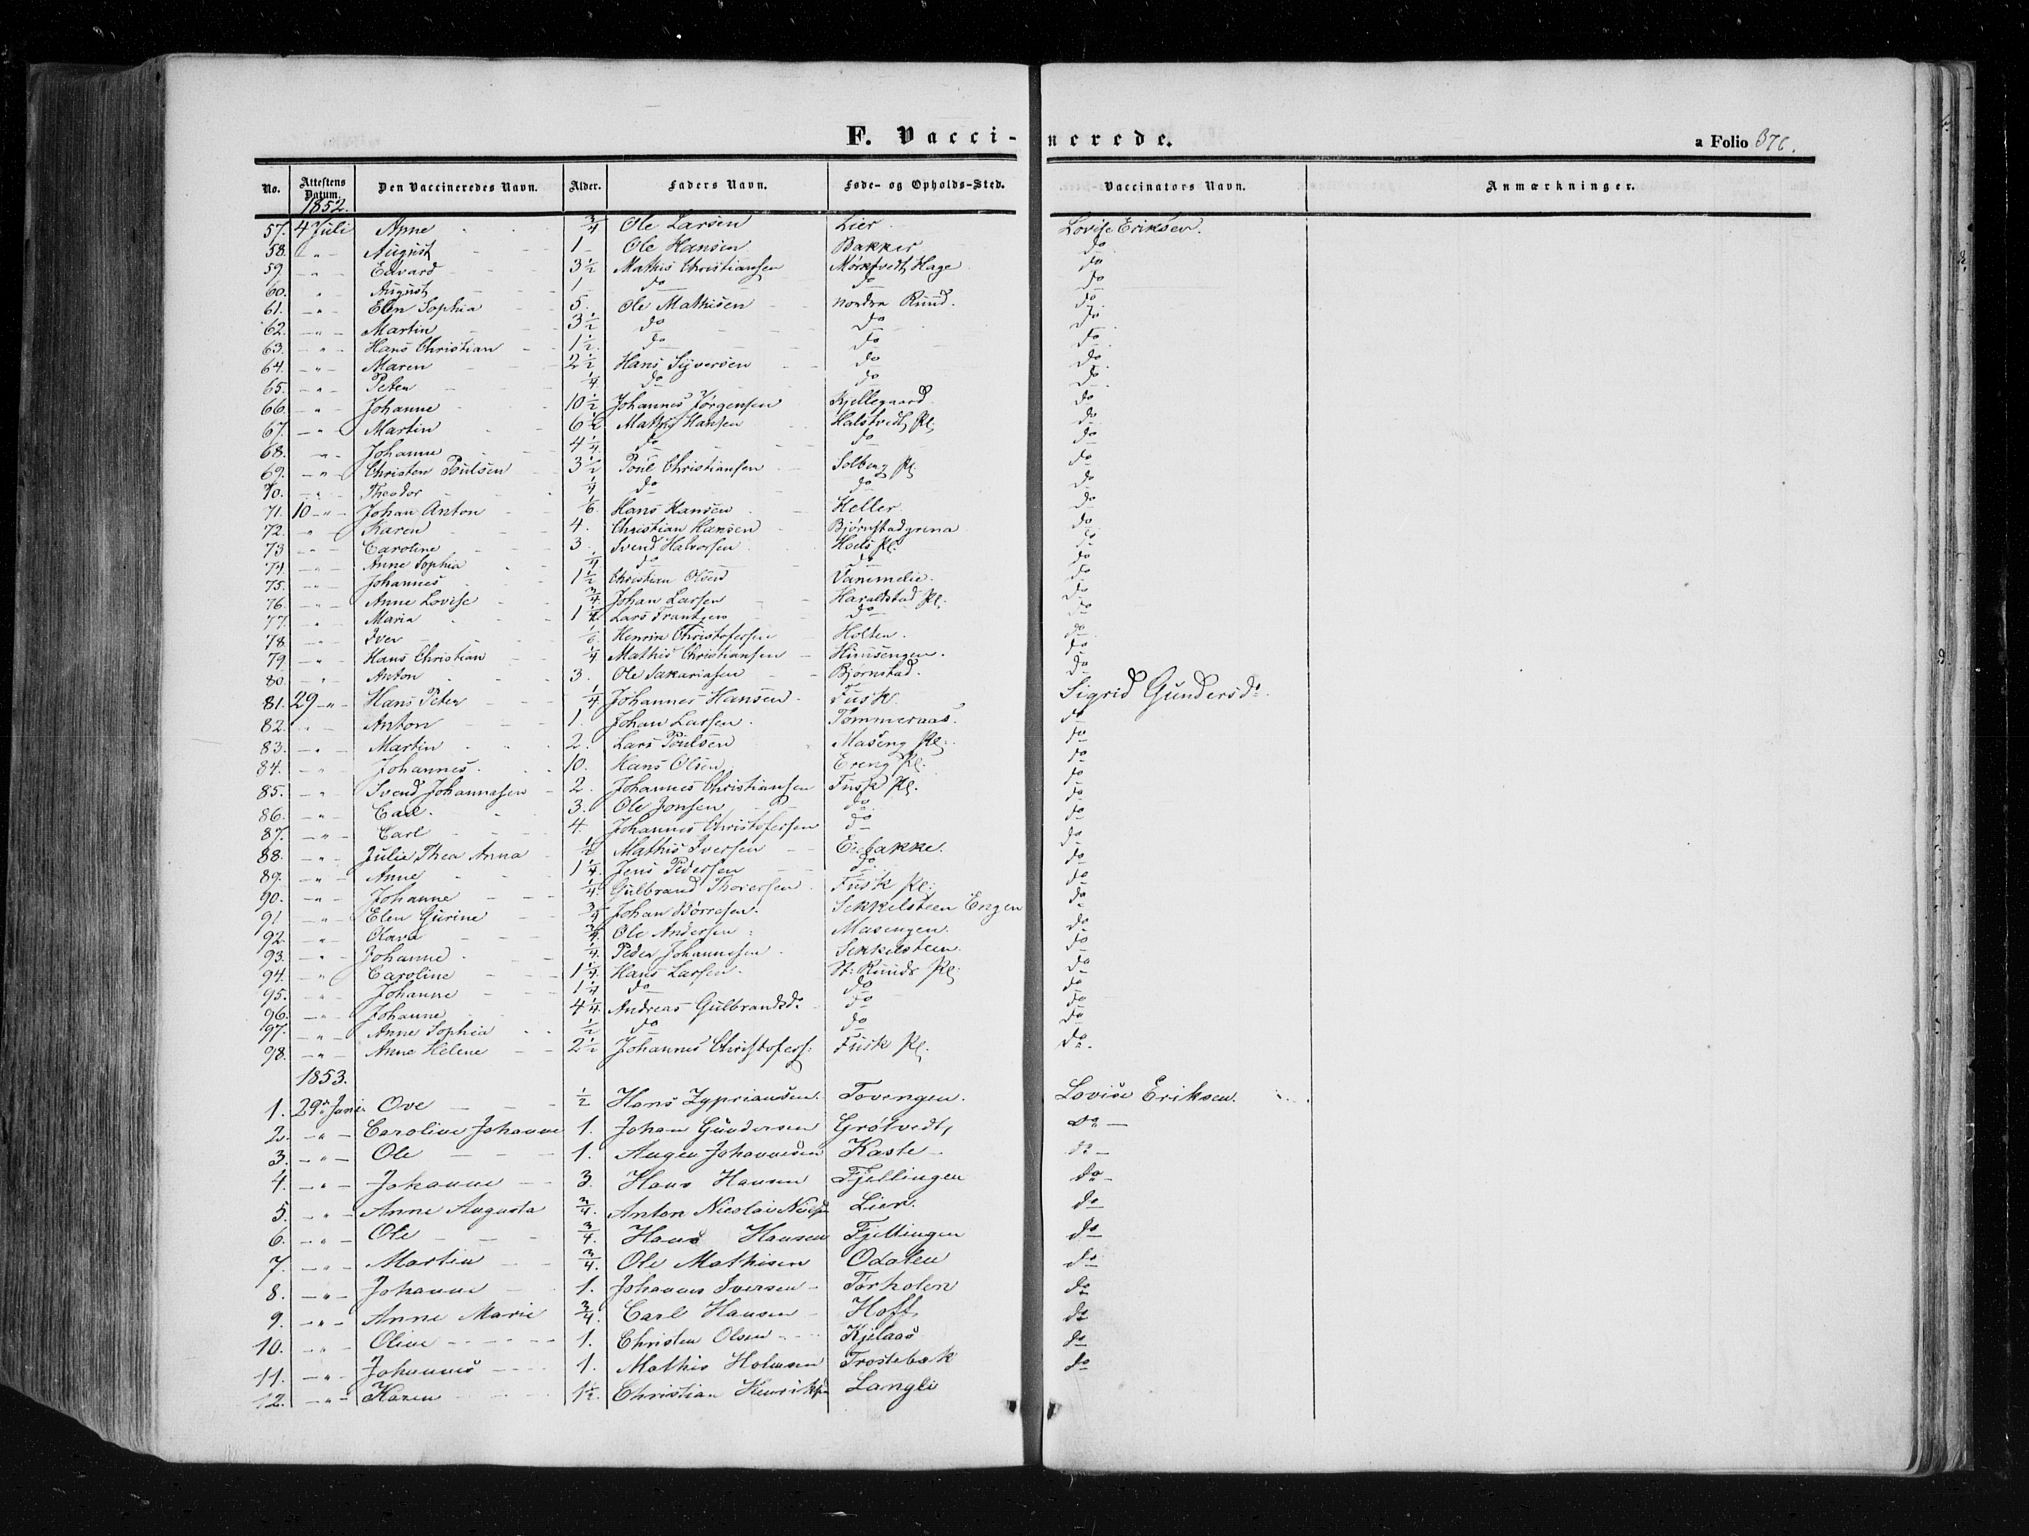 F. Vaccinerede.
a Folio 376.
No. Attestens Datum. Den Vaccineredes Navn. Alder. Faders Navn. Føde- og Opholds-Sted. Vaccinators Navn. Anmærkninger.
1852.
57. 4 Juli Anne 3/4 Ole Larsen Lier Lovise Eriksen.
58. " August 1 Ole Hansen Bakker do
59. " Edvard 3 1/2 Mathis Christiansen Mørkfvedt Hage do
60. " August 1 do do do
61. " Elen Sophia 5. Ole Mathisen nordre Ruud. do
62. " Martin 3 1/2 do do do
63. " Hans Christian 1 1/2 do do do
64. " Maren 2 1/2 Hans Syversen do do
65. " Peter 1/4 do do do
66. " Johanne 10 1/2 Johannes Jørgensen Kjellegaard do
67. " Martin 6 1/2 Mathis Hansen Halstvedt Pl. do
68. " Johanne 4 1/4 do do do
69. " Christen Poulsen 3 1/2 Poul Christiansen Solberg Pl do
70. " Theodor 1/4 do do do
71. 10 " Johan Anton 1/6 Hans Hansen Heller do
72. " Karen 4. Christian Hansen Bjørnstadgrena do
73 " Caroline 3. Svend Halvorsen Hoels Pl. do
74. " Anne Sophia 1/4 do do do
75. " Johannes 1 1/2 Christian Olsen Vammelie. do
76. " Anne Lovise 3/4 Johan Larsen Haraldstad Pl. do
77. " Maria 1 1/4 Lars Frantzen do do
78. " Iver 1/6 Henrik Christofersen Holten. do
79 " Hans Christian 1/4 Mathis Christiansen Huusengen. do
80. " Anton 3. Ole Sakariasen Bjørnstad. do
81. 29 " Hans Peter 1/4 Johannes Hansen Fusk Sigrid Gundersd:
82. " Anton 1. Johan Larsen. Tommeraas. do
83. " Martin 2. Lars Poulsen Maseng Pl. do
84. " Johannes. 10. Hans Olsen Ereng Pl. do
85. " Svend Johannesen 2. Johannes Christiansen Fusk Pl. do
86. " Carl. 3. Ole Jonsen do do
87. " Carl 4. Johannes Christofersen do do
88. " Julie Thea Anna 1/2 Mathis Iversen Enbakke. do
89. " Anne 1 1/4 Jens Pedersen do do
90. " Johanne 1/4. Gulbrand Thorersen Fusk Pl. do
91. " Elen Gurine 3/4 Johan Børresen. Sekkelsteen Engen do
92. " Olava 3/4 Ole Andersen Masengen. do
93. " Johanne. 1/4 Peder Johannesen Sekkelsteen. do
94. " Caroline 1 1/4 Hans Larsen St: Ruuds Pl: do
95. " Johanne 1 1/4 do do do
96. " Johanne 4 1/4 Andreas Gulbrandsd. do do
97. " Anne Sophia 1/2 do do do
98. " Anne Helene 2 1/2 Johannes Christofers: Fusk Pl. do.
1853.
1. 29de Juni Ove 1/2 Hans Zypriansen. Tovengen. Lovise Eriksen.
2. " Caroline Johanne 1. Johan Gundersen Grøtvedt, do
3. " Ole 1. Augen Johannesen Kaste do
4. " Johanne 3. Hans Hansen Fjellingen do
5. " Anne Augusta 3/4. Anton Nicolai Lien. do
6. " Ole 3/4. Hans Hansen Fjellingen do
7. " Martin 3/4. Ole Mathisen Odalen do
8. " Johanne 1. Johannes Iversen Torholen do
9. " Anne Marie 3/4 Carl Hansen Hoff do
10. " Oline 1. Christen Olsen Kjelaas do
11. " Johannes 1. Mathis Holmsen Trostebak do
12. " Karen 1 1/2. Christian Henriksen Langli